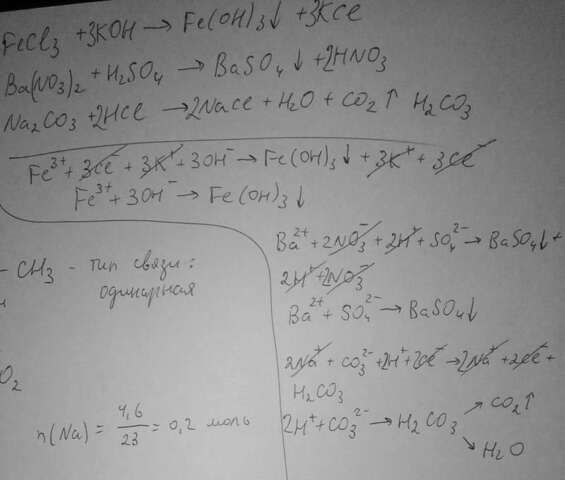 FeCl₃ + 3KOH → Fe(OH)₃↓ + 3KCl
Ba(NO₃)₂ + H₂SO₄ → BaSO₄↓ + 2HNO₃
Na₂CO₃ + 2HCl → 2NaCl + H₂O + CO₂↑ H₂CO₃
Fe³⁺ + 3Cl⁻ + 3K⁺ + 3OH⁻ → Fe(OH)₃↓ + 3K⁺ + 3Cl⁻
Fe³⁺ + 3OH⁻ → Fe(OH)₃↓
– CH₃ – тип связи:
одинарная
O₂
n(Na) = 4,6/23 = 0,2 моль
Ba²⁺ + 2NO₃⁻ + 2H⁺ + SO₄²⁻ → BaSO₄↓ +
2H⁺ + 2NO₃⁻
Ba²⁺ + SO₄²⁻ → BaSO₄↓
2Na⁺ + CO₃²⁻ + 2H⁺ + 2Cl⁻ → 2Na⁺ + 2Cl⁻ +
H₂CO₃
2H⁺ + CO₃²⁻ → H₂CO₃ ↗ CO₂↑
↘ H₂O